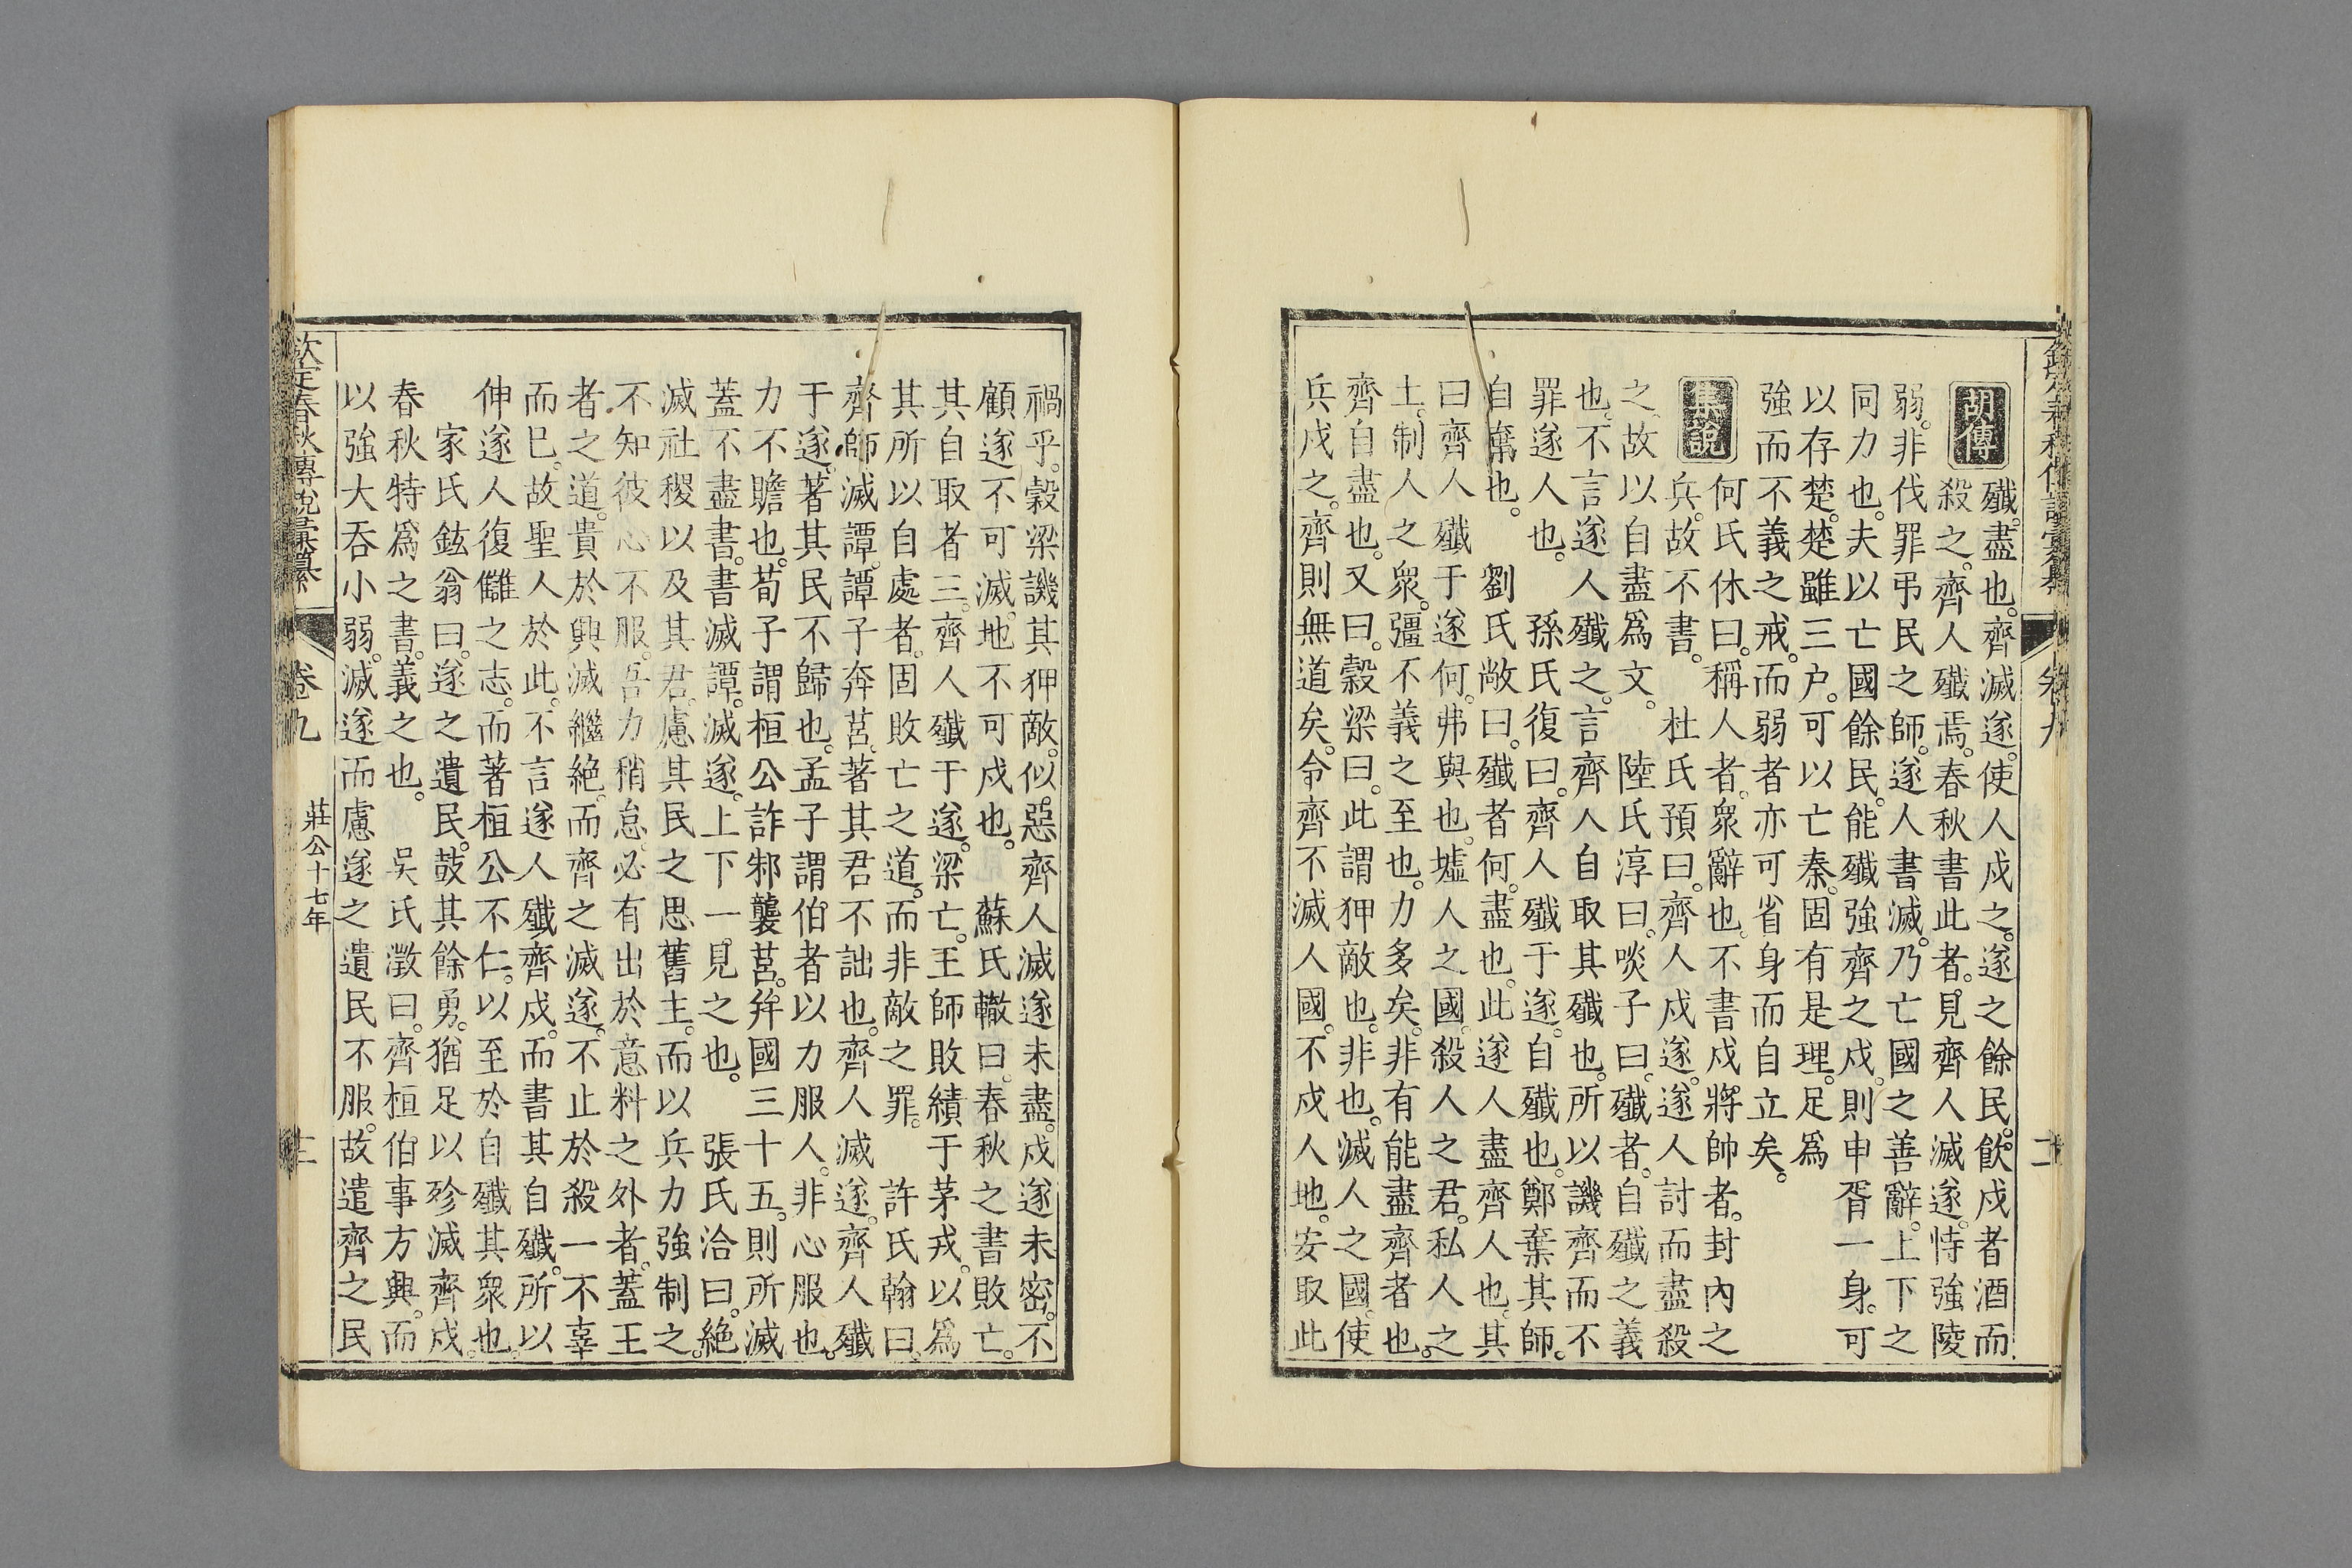 胡傳
殲。盡也。齊滅遂。使人戍之。遂之餘民。飲戍者酒而
殺之。齊人殲焉。春秋書此者。見齊人滅遂。恃強陵
弱。非伐罪弔民之師。遂人書滅。乃亡國之善辭。上下之
同力也。夫以亡國餘民。能殲強齊之戍。則申胥一身。可
以存楚。楚雖三户。可以亡秦。固有是理。足爲
強而不義之戒。而弱者亦可省身而自立矣。
集說
何氏休曰。稱人者。衆辭也。不書戍。將帥者。封內之
兵。故不書。 杜氏預曰。齊人戍遂。遂人討而盡殺
之。故以自盡爲文。 陸氏淳曰。啖子曰。殲者。自殲之義
也。不言遂人殲之。言齊人自取其殲也。所以譏齊而不
罪遂人也。 孫氏復曰。齊人殲于遂。自殲也。鄭棄其師。
自棄也。 劉氏敞曰。殲者何。盡也。此遂人盡齊人也。其
曰齊人殲于遂何。弗與也。墟人之國。殺人之君。私人之
土。制人之衆。彊不義之至也。力多矣。非有能盡齊者也。
齊自盡也。又曰。糓梁曰。此謂狎敵也。非也。滅人之國。使
兵戍之。齊則無道矣。令齊不滅人國。不戍人地。安取此
禍乎。糓梁譏其狎敵。似惡齊人滅遂未盡。戍遂未密。不
顧遂不可滅。地不可戍也。 蘇氏轍曰。春秋之書敗亡。
其自取者三。齊人殲于遂。梁亡。王師敗績于茅戎。以爲
其所以自處者。固敗亡之道。而非敵之罪。 許氏翰曰。
齊師滅譚。譚子奔莒。著其君不詘也。齊人滅遂。齊人殲
于遂。著其民不歸也。孟子謂伯者以力服人。非心服也。
力不贍也。荀子謂桓公詐邾襲莒。并國三十五。則所滅
蓋不盡書。書滅譚。滅遂。上下一見之也。 張氏洽曰。絶
滅社稷以及其君。慮其民之思舊主。而以兵力強制之。
不知彼心不服。吾力稍怠。必有出於意料之外者。蓋王
者之道。貴於興滅繼絶。而齊之滅遂。不止於殺一不辜
而已。故聖人於此。不言遂人殲齊戍。而書其自殲。所以
伸遂人復讎之志。而著桓公不仁。以至於自殲其衆也。
家氏鉉翁曰。遂之遺民。鼓其餘勇。猶足以殄滅齊戍。
春秋特爲之書。義之也。 吳氏澂曰。齊桓伯事方興。而
以強大吞小弱。滅遂而慮遂之遺民不服。故遣齊之民
欽定春秋傳說彙纂 卷九 莊公十七年